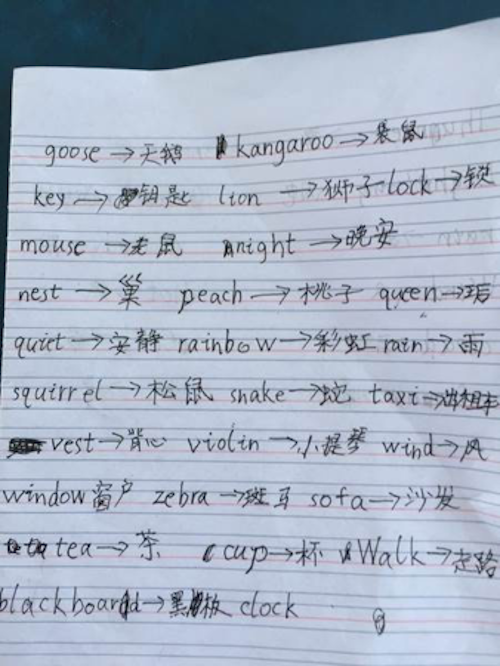 goose →天鹅 kangaroo → 袋鼠
key → 钥匙 lion → 狮子 lock → 锁
mouse → 老鼠 night → 晚安
nest → 巢 peach → 桃子 queen →
quiet → 安静 rainbow → 彩虹 rain → 雨
squirrel → 松鼠 snake → 蛇 taxi → 出租车
vest → 背心 violin → 小提琴 wind → 风
window 窗户 zebra → 斑马 sofa → 沙发
tea → 茶 cup → 杯 Walk → 走路
blackboard → 黑板 clock